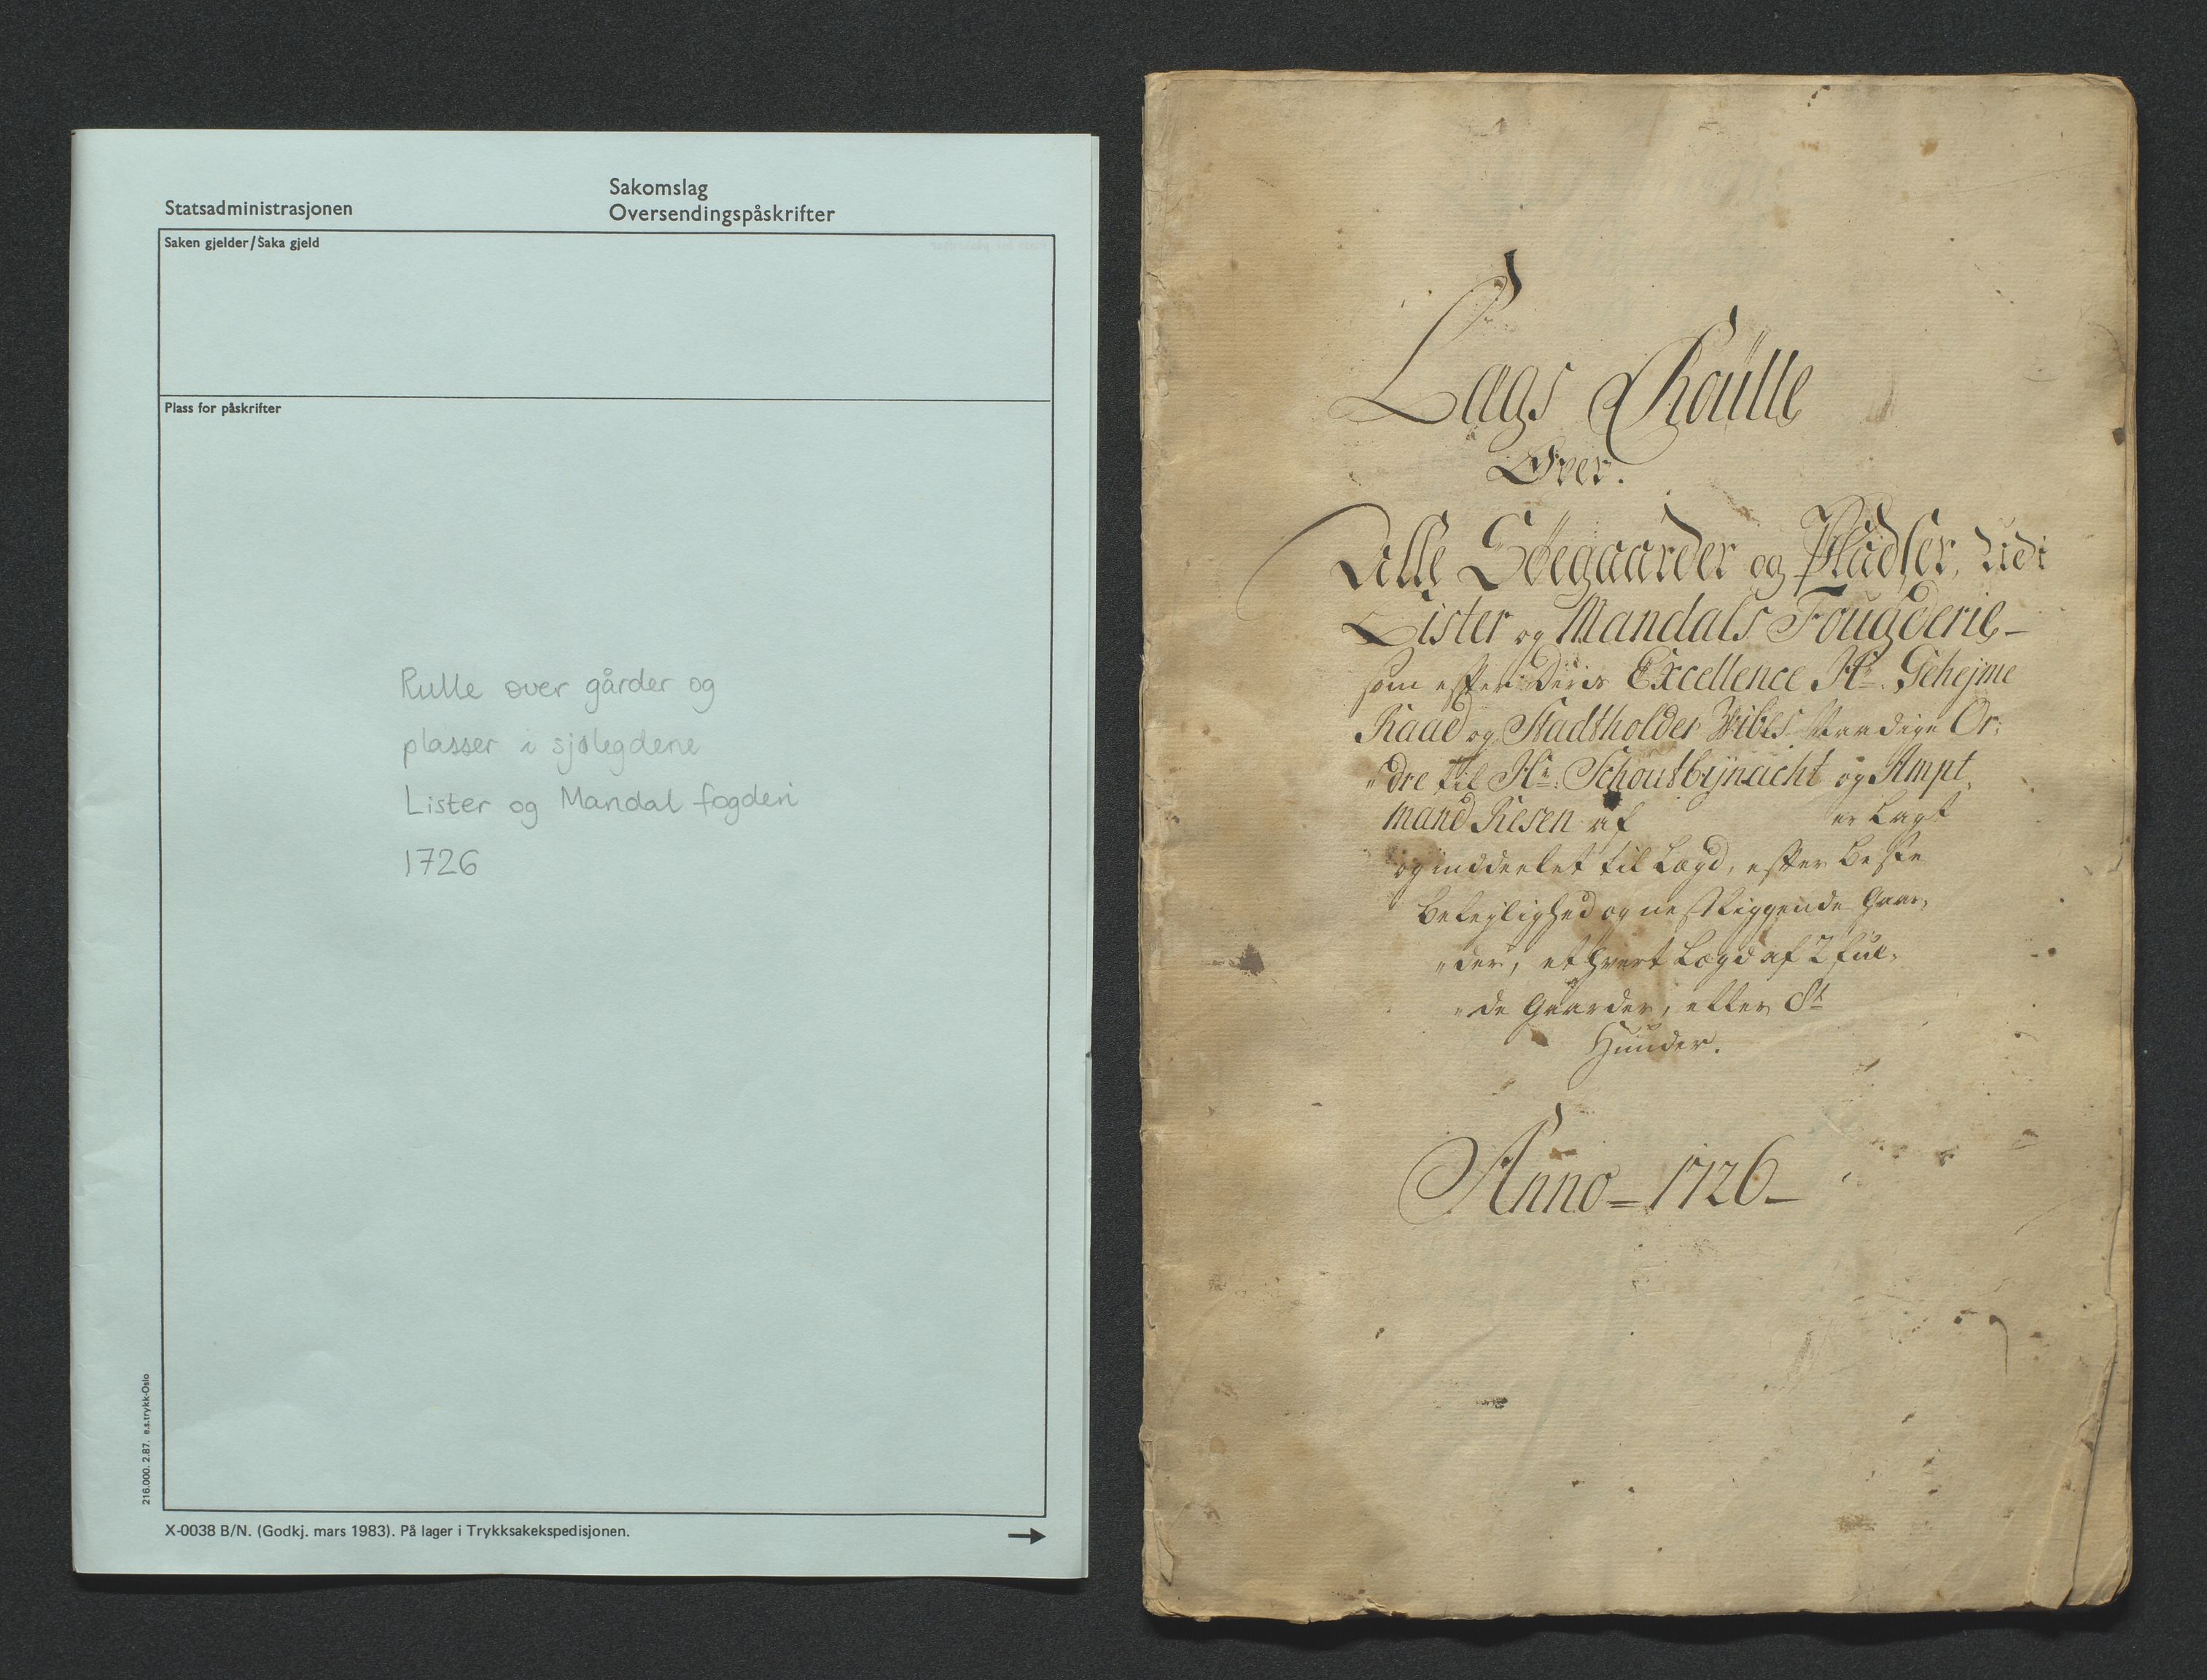 Statsadministrasjonen
Sakomslag
Oversendingspåskrifter
Saken gjelder/Saka gjeld
Plass for påskrifter
Rulle over gårder og
plasser i sjølegdene
Lister og Mandal fogderi
1726
216.000. 2.87. e.s.trykk-Oslo
X-0038 B/N. (Godkj. mars 1983). På lager i Trykksakekspedisjonen.
Lags Roulle
Over.
Alle Söegaarder og Pladser, Udi
Lister og Mandals Fougderie
som efter Deris Excellence Hr. Gehejme
Raad og Stadtholder Wibes Or-
dre til Hr. Schoutbÿnacht og Ampt
mand Resen af er Lagt
og inddeelet til Lægd, efter beste
beleylighed og nestliggende Gaar-
der, ethvert Lægd af 2 ful-
de Gaarder, eller 8t
Huuder.
Anno = 1726